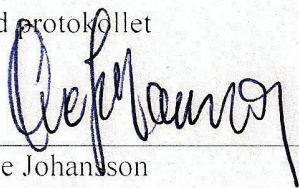 d protokollet
e Johansson